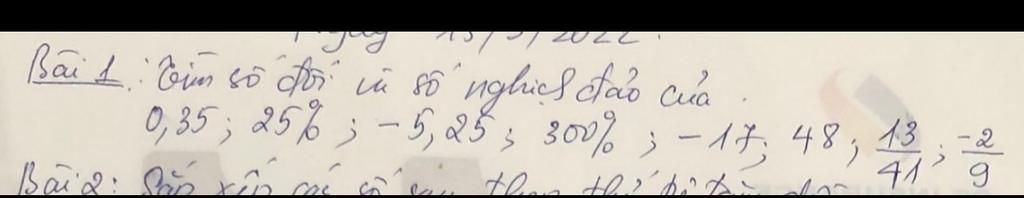 Ngày 13/3/2022.
Bài 1: Tìm số đối và số nghịch đảo của.
0,35; 25%; -5,25; 300%; -17; 48; 13/41; -2/9
Bài 2: Sắp xếp các số sau theo thứ tự